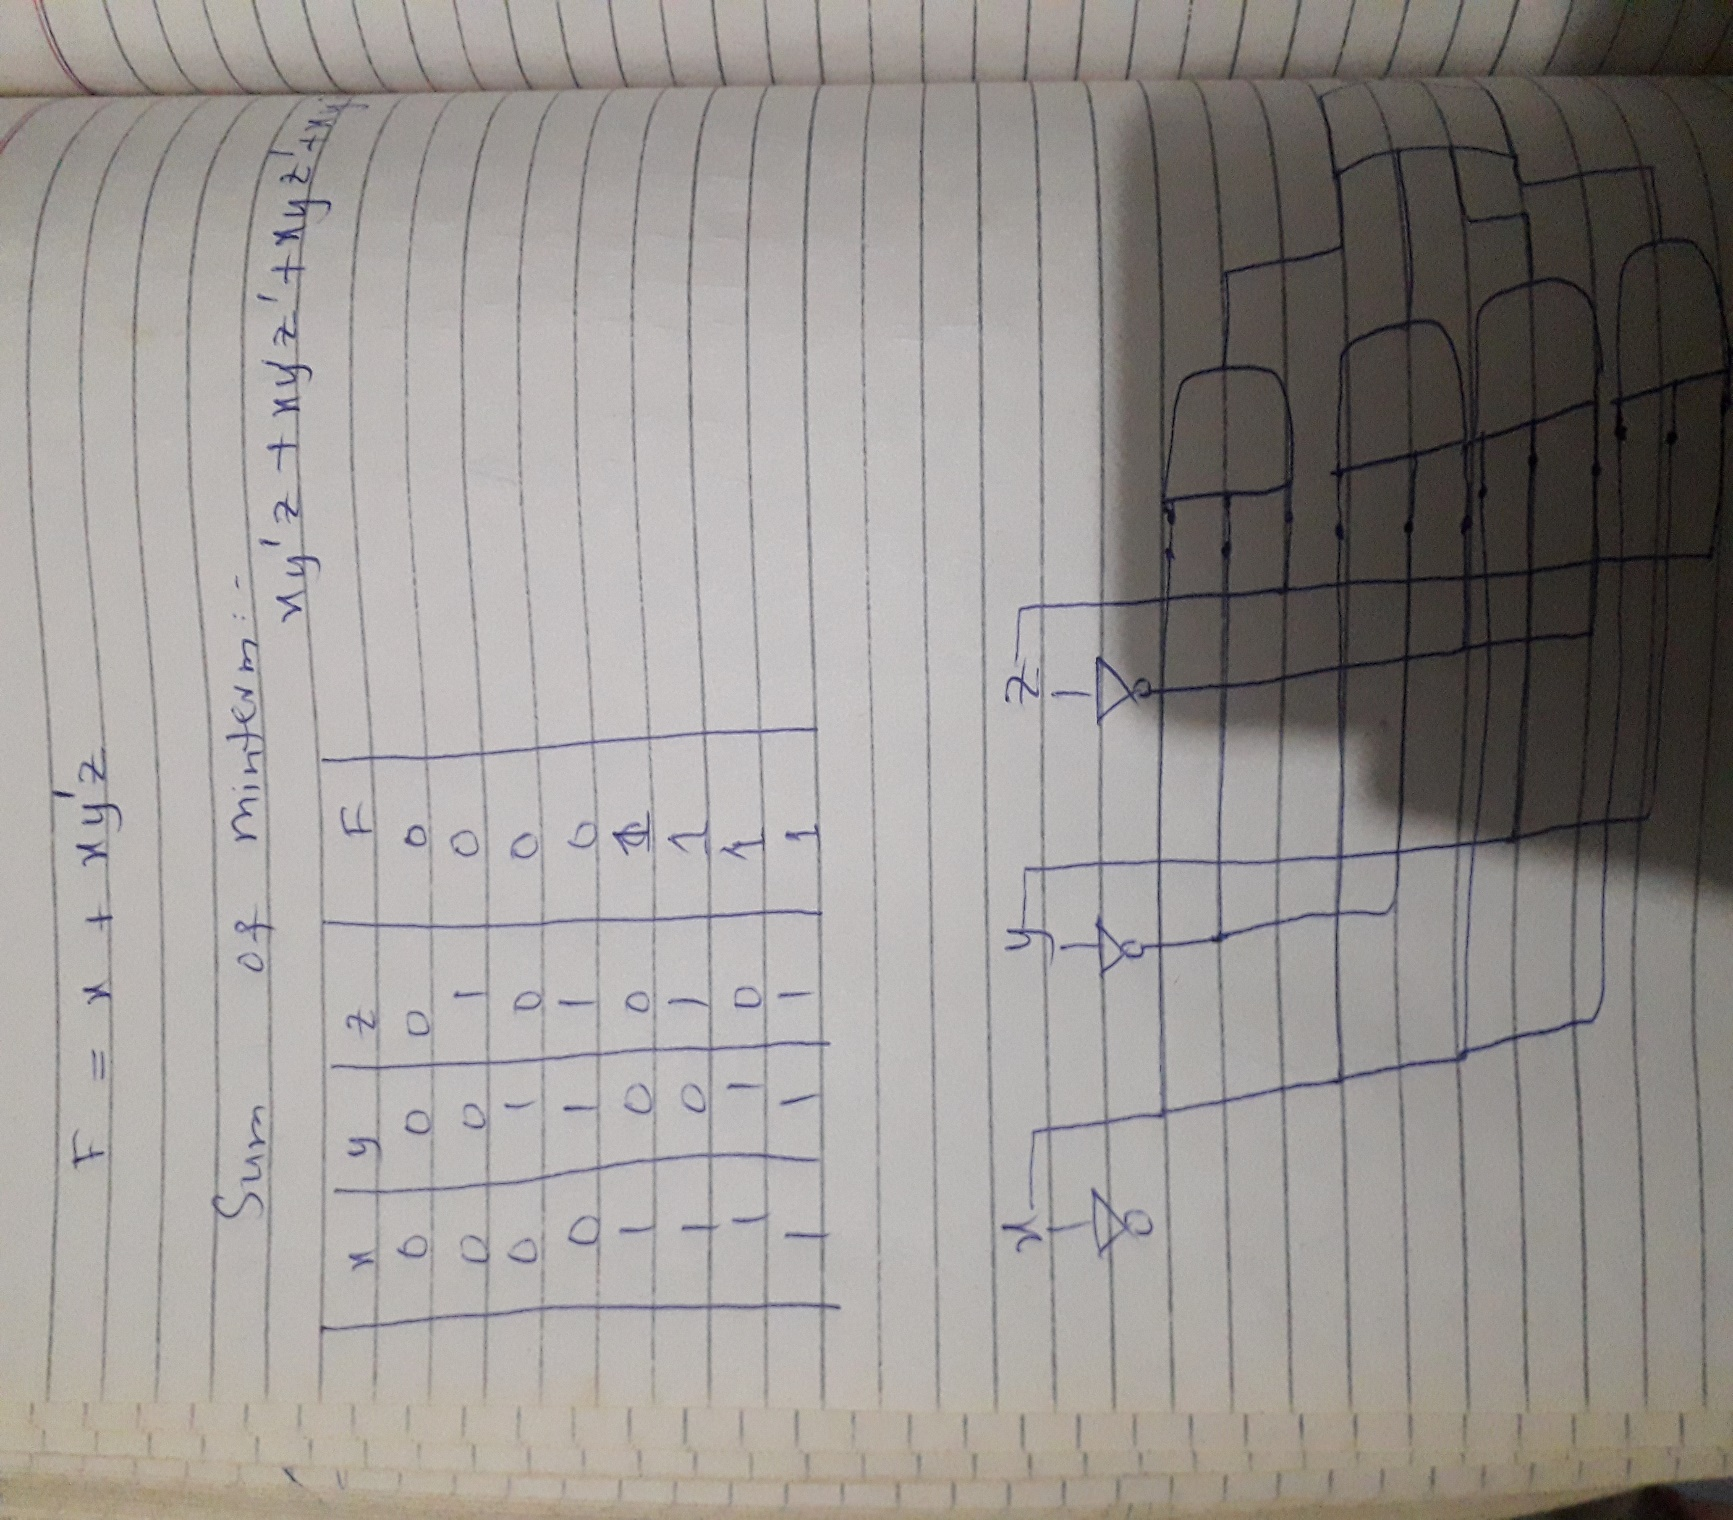 F = x + xy'z
Sum of minterm:-
xy'z + xyz' + xyz' + xy
x y z F
0 0 0 0
0 0 1 0
0 1 0 0
0 1 1 0
1 0 0 1
1 0 1 1
1 1 0 1
1 1 1 1
x y z